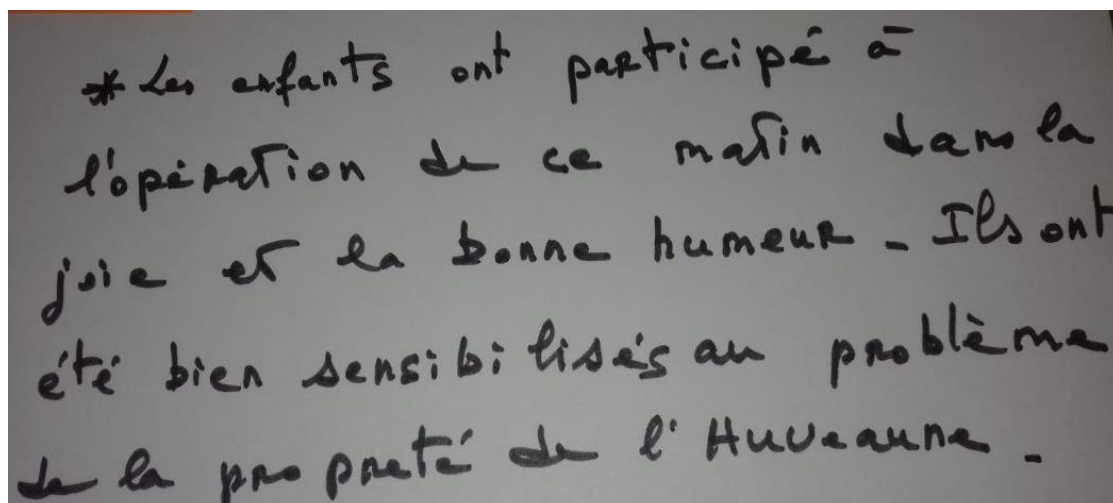 * Les enfants ont participé à
l'opération de ce matin dans la
joie et la bonne humeur - Ils ont
été bien sensibilisés au problème
de la propreté de l'Huveaune -